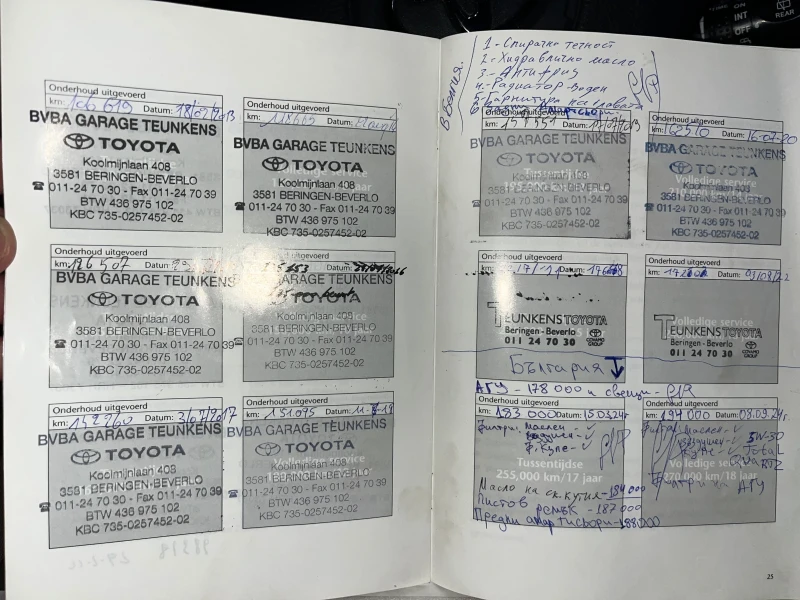 Onderhoud uitgevoerd
km: 106 619 Datum: 18/02/2013
BVBA GARAGE TEUNKENS
TOYOTA
Koolmijnlaan 408
3581 BERINGEN-BEVERLO
011-24 70 30 - Fax 011-24 70 39
BTW 436 975 102
KBC 735-0257452-02
Onderhoud uitgevoerd
km: Datum:
BVBA GARAGE TEUNKENS
TOYOTA
Koolmijnlaan 408
3581 BERINGEN-BEVERLO
011-24 70 30 - Fax 011-24 70 39
BTW 436 975 102
KBC 735-0257452-02
Onderhoud uitgevoerd
km: 126 507 Datum:
BVBA GARAGE TEUNKENS
TOYOTA
Koolmijnlaan 408
3581 BERINGEN-BEVERLO
011-24 70 30 - Fax 011-24 70 39
BTW 436 975 102
KBC 735-0257452-02
Onderhoud uitgevoerd
Datum:
TOYOTA
Koolmijnlaan 408
3581 BERINGEN-BEVERLO
011-24 70 30 - Fax 011-24 70 39
BTW 436 975 102
KBC 735-0257452-02
Onderhoud uitgevoerd
km: 142260 Datum: 3/07/2017
BVBA GARAGE TEUNKENS
TOYOTA
Koolmijnlaan 408
3581 BERINGEN-BEVERLO
011-24 70 30 - Fax 011-24 70 39
BTW 436 975 102
KBC 735-0257452-02
Onderhoud uitgevoerd
km: 151095 Datum:
BVBA GARAGE TEUNKENS
TOYOTA
Koolmijnlaan 408
3581 BERINGEN-BEVERLO
011-24 70 30 - Fax 011-24 70 39
BTW 436 975 102
KBC 735-0257452-02
В Белгия.
1 - Спирачна течност
2 - Хидравлично масло
3 - Антифриз
4 - Радиатор воден
5 - Гарнитура на главата
Onderhoud uitgevoerd
km: 157551 Datum:
BVBA GARAGE TEUNKENS
TOYOTA
Tussentijdse
Koolmijnlaan 408
3581 BERINGEN-BEVERLO
011-24 70 30 - Fax 011-24 70 39
BTW 436 975 102
KBC 735-0257452-02
Onderhoud uitgevoerd
km: 162510 Datum: 16-07-20
BVBA GARAGE TEUNKENS
TOYOTA
Volledige service
Koolmijnlaan 408
3581 BERINGEN-BEVERLO
011-24 70 30 - Fax 011-24 70 39
BTW 436 975 102
KBC 735-0257452-02
Onderhoud uitgevoerd
Datum:
TEUNKENS TOYOTA
Beringen - Beverlo
011 24 70 30
Onderhoud uitgevoerd
km: Datum:
Volledige service
TEUNKENS TOYOTA
Beringen - Beverlo
011 24 70 30
България
АГУ - 178 000 и свещи -
Onderhoud uitgevoerd
km: 183 000 Datum: 15.03.24г
филтри: маслен - ✓
въздушен - ✓
ф. купе - ✓
Tussentijdse
255,000 km/17 jaar
Масло на ск. кутия - 184000
Пистов ремък - 187 000
Предни амартисьори - 188000
Onderhoud uitgevoerd
km: 194 000 Datum: 08.09.24г.
филтри: маслен - ✓
въздушен - ✓
купе - ✓
5W-30
Total
Quartz
Volledige service
270,000 km/18 jaar
филтри на АГУ
25
INT
OFF
REAR